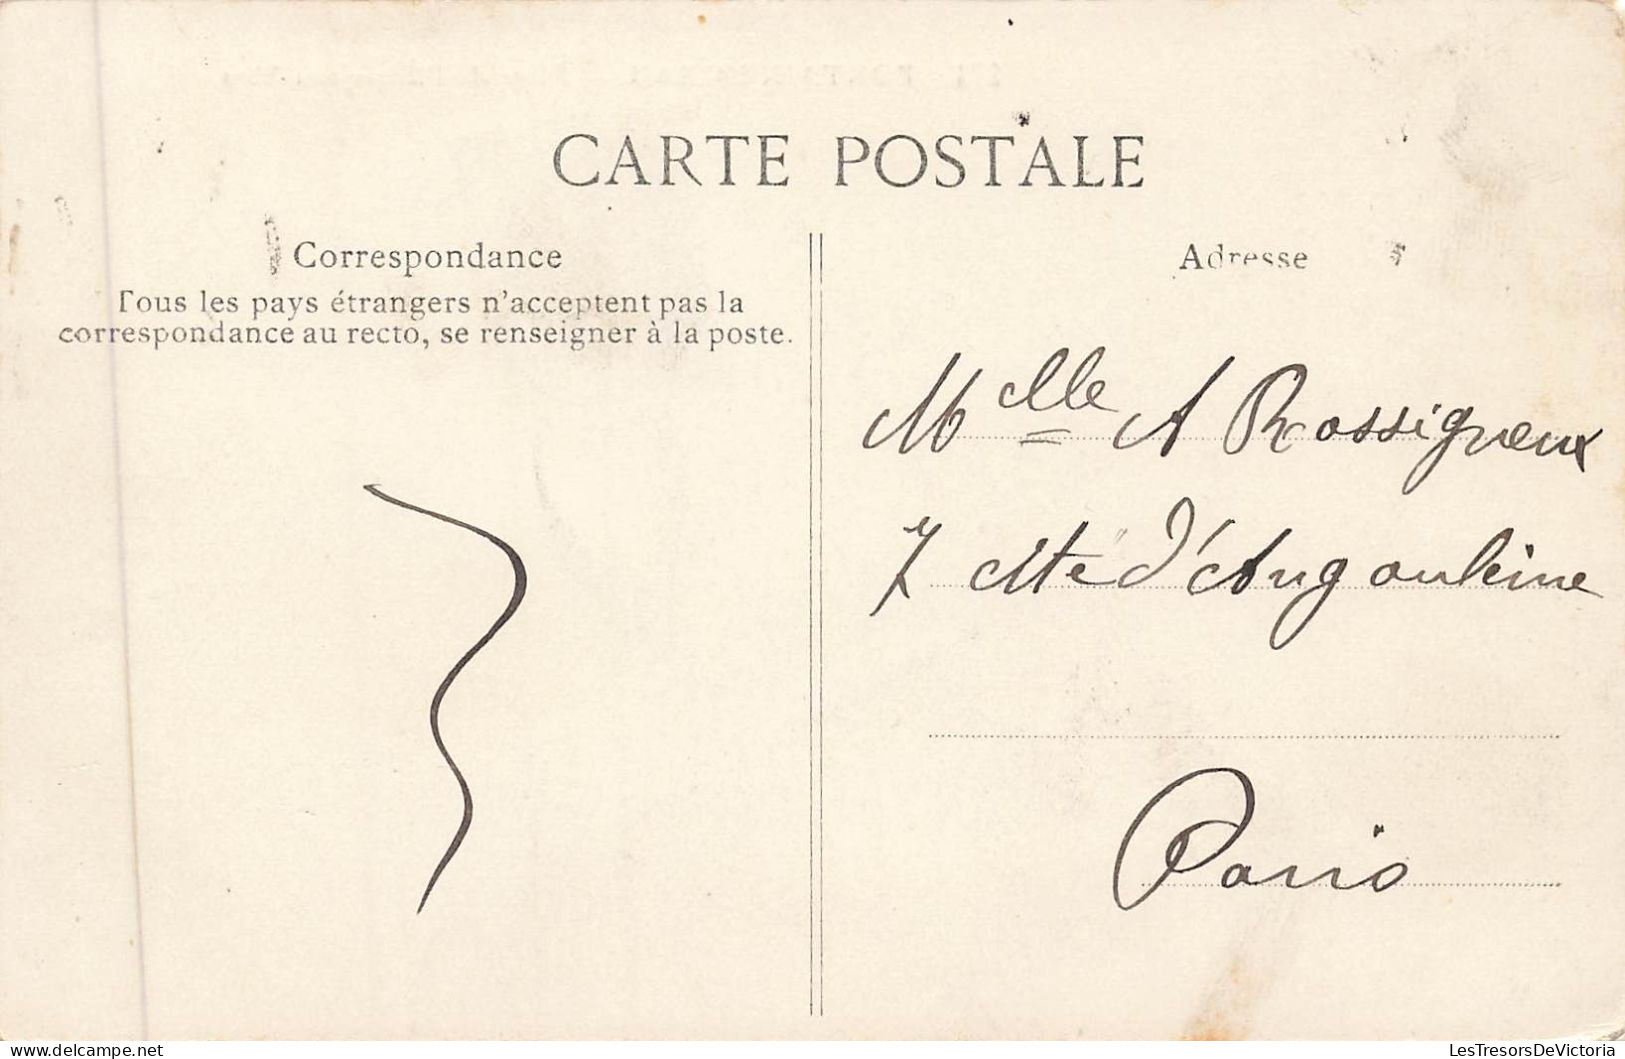 CARTE POSTALE
Correspondance
Tous les pays étrangers n'acceptent pas la
correspondance au recto, se renseigner à la poste.
Adresse
Melle A Rossigneux
7 cité d'Angoulème
Paris
delcampe.net
LesTresorsDeVictoria